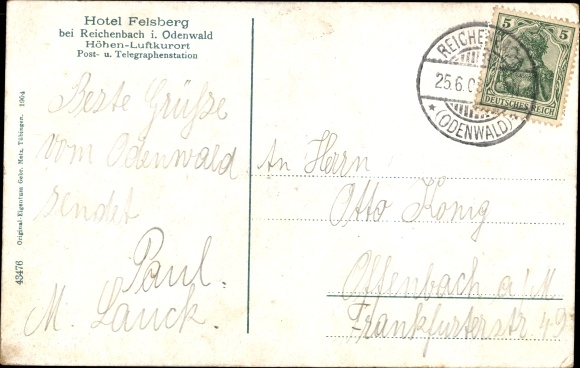 Hotel Felsberg
bei Reichenbach i. Odenwald
Höhen-Luftkurort
Post- u. Telegraphenstation
Beste Grüsse
vom Odenwald
sendet
Paul.
M. Lauck.
43476 Original-Eigentum Gebr. Metz, Tübingen. 1904
5 5
DEUTSCHES REICH
25.6.0
* (ODENWALD) *
An Herrn
Otto König
Offenbach a/M
Frankfurterstr. 49